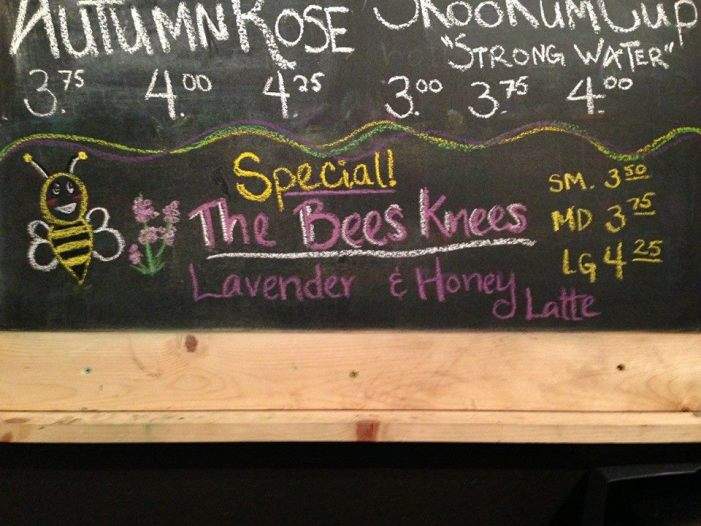 Autumn Rose Skookum Cup
"Strong Water"
3.75 4.00 4.25 3.00 3.75 4.00
Special!
The Bees Knees
Lavender & Honey
Latte
SM. 3 50
MD 3 75
LG 4 25